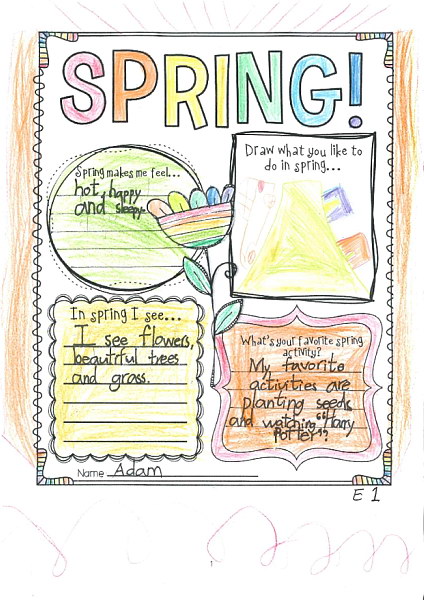 SPRING!
Spring makes me feel...
hot, happy
and sleepy.
Draw what you like
to do in spring...
In spring I see...
I see flowers,
beautiful trees
and grass.
What's your favorite spring
activity?
My favorite
activities are
planting seeds
and watching "Harry
Potter"?
Name Adam
E 1
1